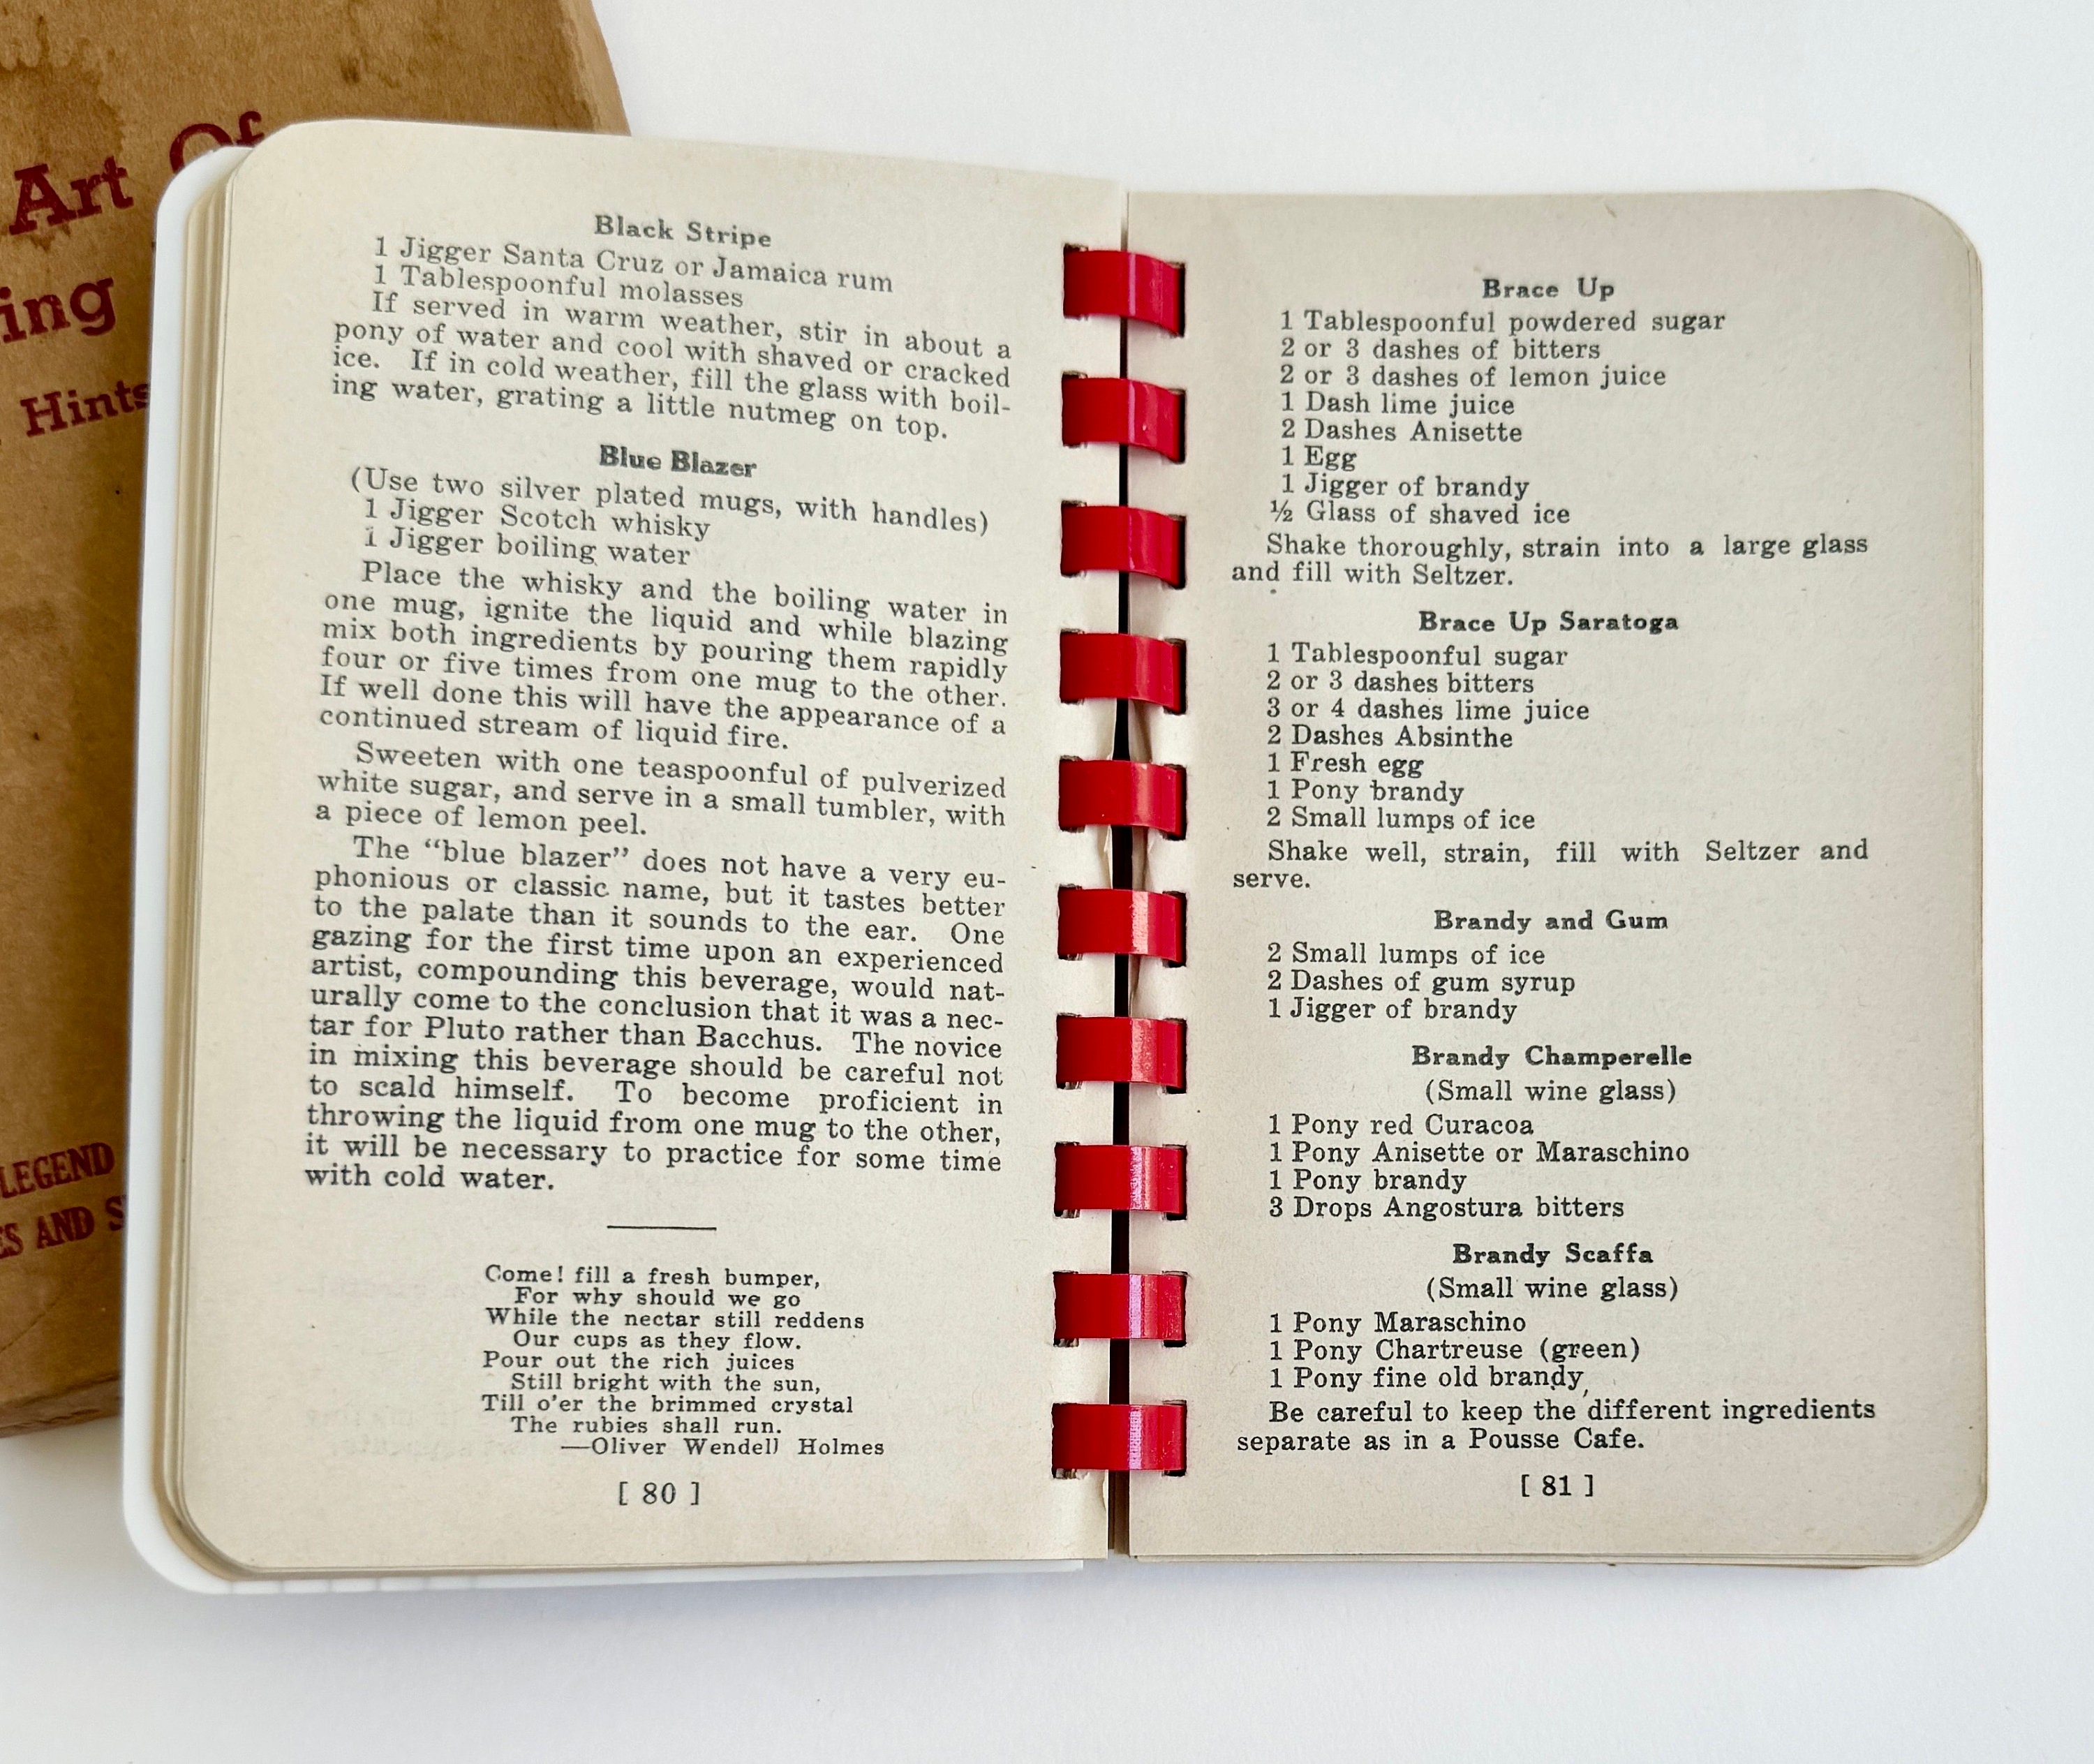 Art Of
ing
Hints
LEGEND
ES AND S
Black Stripe
1 Jigger Santa Cruz or Jamaica rum
1 Tablespoonful molasses
If served in warm weather, stir in about a
pony of water and cool with shaved or cracked
ice. If in cold weather, fill the glass with boil-
ing water, grating a little nutmeg on top.
Blue Blazer
(Use two silver plated mugs, with handles)
1 Jigger Scotch whisky
1 Jigger boiling water
Place the whisky and the boiling water in
one mug, ignite the liquid and while blazing
mix both ingredients by pouring them rapidly
four or five times from one mug to the other.
If well done this will have the appearance of a
continued stream of liquid fire.
Sweeten with one teaspoonful of pulverized
white sugar, and serve in a small tumbler, with
a piece of lemon peel.
The “blue blazer” does not have a very eu-
phonious or classic name, but it tastes better
to the palate than it sounds to the ear. One
gazing for the first time upon an experienced
artist, compounding this beverage, would nat-
urally come to the conclusion that it was a nec-
tar for Pluto rather than Bacchus. The novice
in mixing this beverage should be careful not
to scald himself. To become proficient in
throwing the liquid from one mug to the other,
it will be necessary to practice for some time
with cold water.
Come! fill a fresh bumper,
For why should we go
While the nectar still reddens
Our cups as they flow.
Pour out the rich juices
Still bright with the sun,
Till o'er the brimmed crystal
The rubies shall run.
—Oliver Wendell Holmes
[ 80 ]
Brace Up
1 Tablespoonful powdered sugar
2 or 3 dashes of bitters
2 or 3 dashes of lemon juice
1 Dash lime juice
2 Dashes Anisette
1 Egg
1 Jigger of brandy
½ Glass of shaved ice
Shake thoroughly, strain into a large glass
and fill with Seltzer.
Brace Up Saratoga
1 Tablespoonful sugar
2 or 3 dashes bitters
3 or 4 dashes lime juice
2 Dashes Absinthe
1 Fresh egg
1 Pony brandy
2 Small lumps of ice
Shake well, strain, fill with Seltzer and
serve.
Brandy and Gum
2 Small lumps of ice
2 Dashes of gum syrup
1 Jigger of brandy
Brandy Champerelle
(Small wine glass)
1 Pony red Curacoa
1 Pony Anisette or Maraschino
1 Pony brandy
3 Drops Angostura bitters
Brandy Scaffa
(Small wine glass)
1 Pony Maraschino
1 Pony Chartreuse (green)
1 Pony fine old brandy
Be careful to keep the different ingredients
separate as in a Pousse Cafe.
[ 81 ]